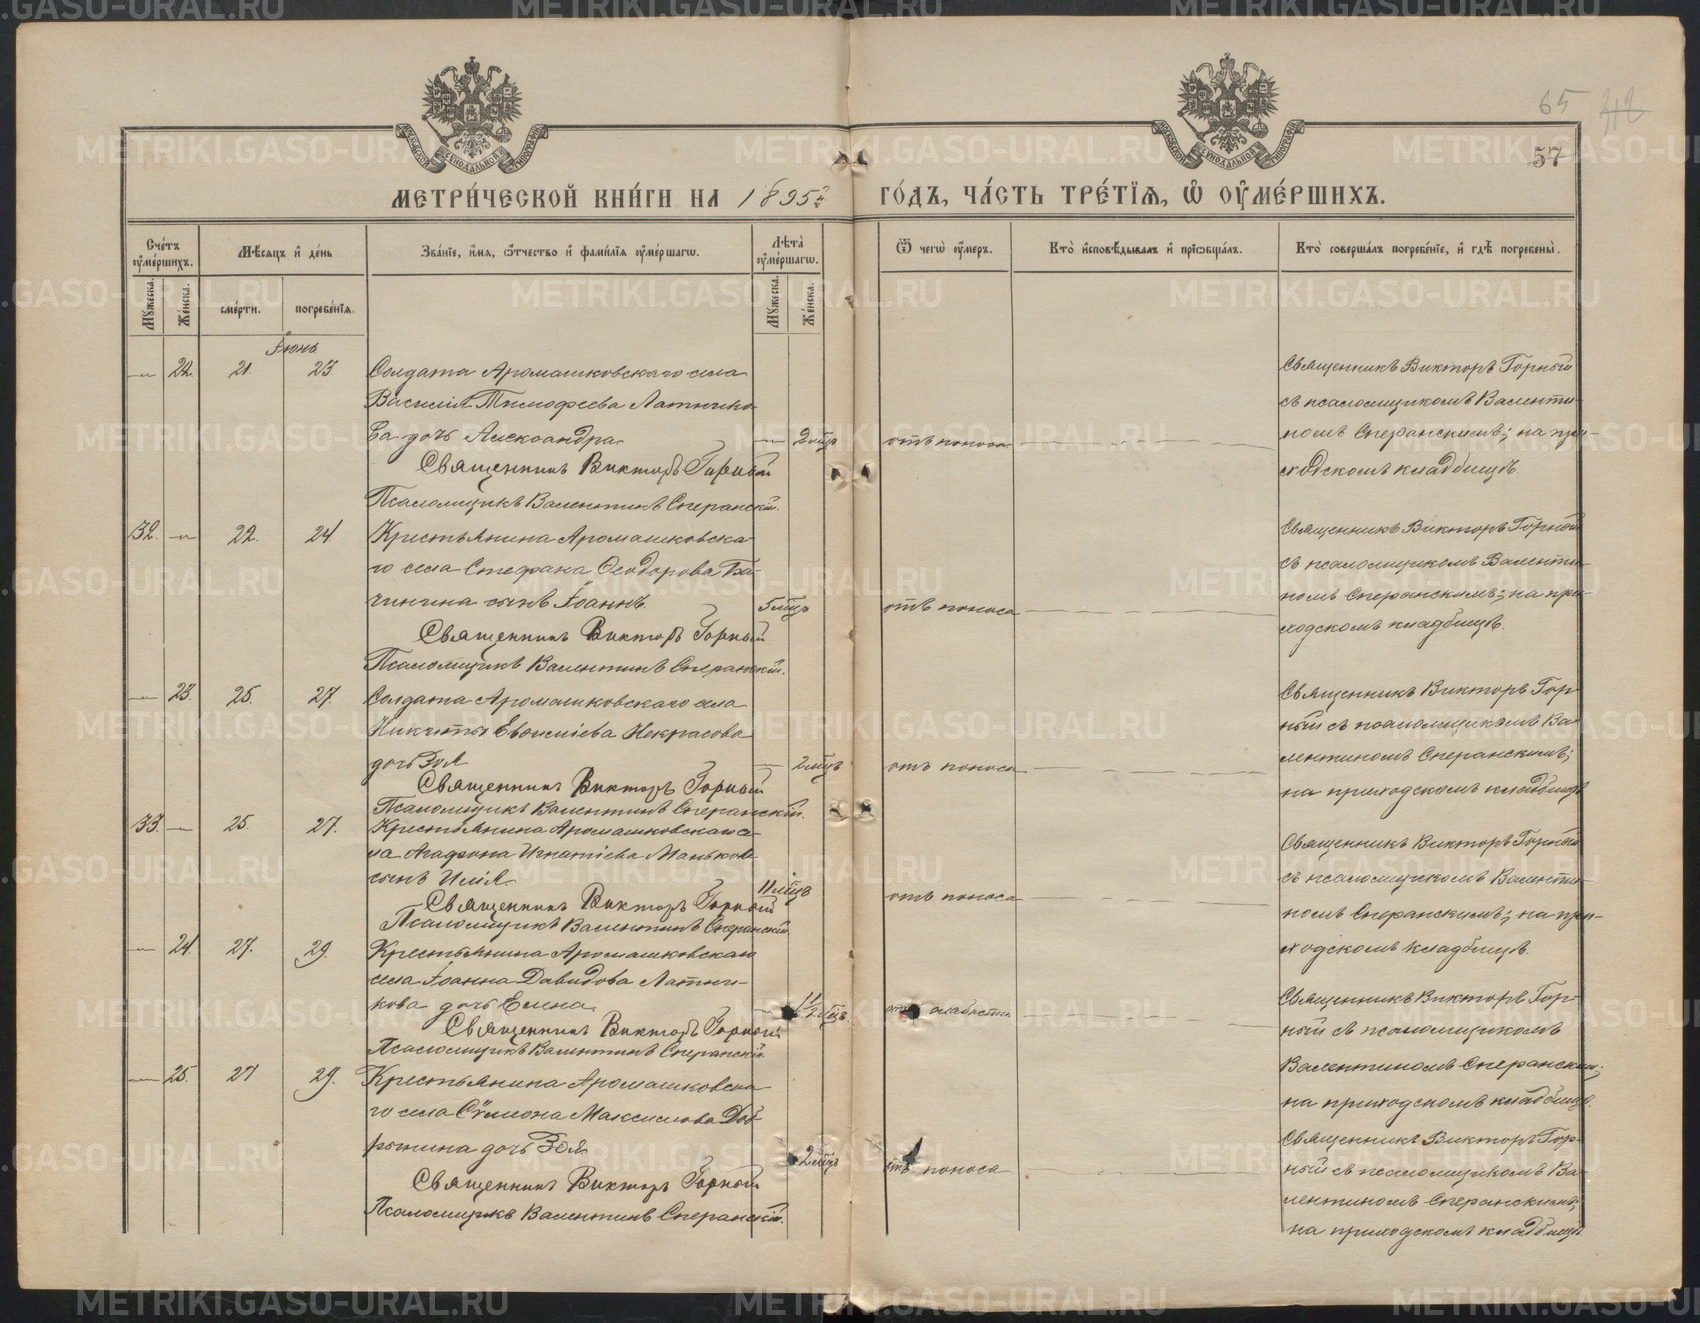 МЕТРИ́ЧЕСКОЙ КНИ́ГИ НА 1895й ГО́ДЪ, ЧА́СТЬ ТРЕ́ТЇЯ, Ѡ҆ ОУ҆МЕ́РШИХЪ.
65 42
57
Сче́тъ оу҆ме́ршихъ.
Мꙋ́жеска.
Же́нска.
Мѣ́сяцъ и҆ де́нь
сме́рти.
погребе́нїя.
Зва́нїе, и҆́мя, ѻ҆́тчество и҆ фами́лїя оу҆ме́ршагѡ.
Лѣ́та оу҆ме́ршагѡ.
Мꙋ́жеска.
Же́нска.
Ѿ чегѡ̀ оу҆́меръ.
Кто̀ и҆сповѣ́дывалъ и҆ прїѡбща́лъ.
Кто̀ соверша́лъ погребе́нїе, и҆ гдѣ̀ погребены̀.
Іюнь
22. 21. 23. Солдата Аромашковскаго села
Василія Тимофеева Латнико-
ва дочь Александра 2 мѣц. отъ поноса
Священникъ Викторъ Горный
Псаломщикъ Валентинъ Сперанскій.
Священникъ Викторъ Горный
съ псаломщикомъ Валенти-
номъ Сперанскимъ; на при-
ходскомъ кладбищѣ.
32. 22. 24. Крестьянина Аромашковска-
го села Стефана Ѳеодорова Ба-
чинина сынъ Іоаннъ. 5 мѣц. отъ поноса
Священникъ Викторъ Горный
Псаломщикъ Валентинъ Сперанскій.
Священникъ Викторъ Горный
съ псаломщикомъ Валенти-
номъ Сперанскимъ; на при-
ходскомъ кладбищѣ.
23. 25. 27. Солдата Аромашковскаго села
Никиты Евѳиміева Некрасова
дочь Зоя 2 мѣц. отъ поноса
Священникъ Викторъ Горный
Псаломщикъ Валентинъ Сперанскій.
Священникъ Викторъ Гор-
ный съ псаломщикомъ Ва-
лентиномъ Сперанскимъ;
на приходскомъ кладбищѣ
33. 25. 27. Крестьянина Аромашковскаго се-
ла Агафона Игнатіева Манькова
сынъ Илія 11 мѣц. отъ поноса
Священникъ Викторъ Горный
Псаломщикъ Валентинъ Сперанскій.
Священникъ Викторъ Горный
съ псаломщикомъ Валенти-
номъ Сперанскимъ; на при-
ходскомъ кладбищѣ.
24. 27. 29. Крестьянина Аромашковскаго
села Іоанна Давидова Латни-
кова дочь Елена 1/2 мѣц. отъ слабости
Священникъ Викторъ Горный
Псаломщикъ Валентинъ Сперанскій.
Священникъ Викторъ Гор-
ный съ псаломщикомъ
Валентиномъ Сперанскимъ;
на приходскомъ кладбищѣ.
25. 27 29. Крестьянина Аромашковска-
го села Сѷмеона Максимова Доб-
рынина дочь Зоя 2 мѣц. отъ поноса
Священникъ Викторъ Горный
Псаломщикъ Валентинъ Сперанскій.
Священникъ Викторъ Гор-
ный съ псаломщикомъ Ва-
лентиномъ Сперанскимъ;
на приходскомъ кладбищѣ.
METRIKI.GASO-URAL.RU